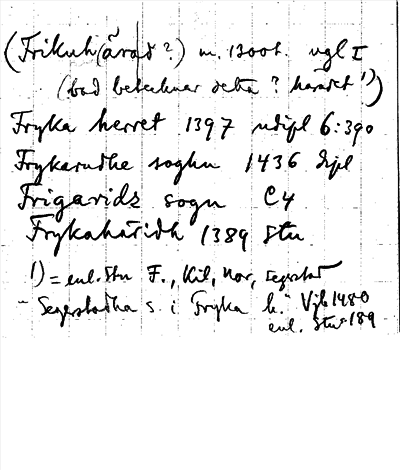 (Frikuh(ärad?) m. 1300t. vgl I
(vad betecknar detta? häradet 1))
Fryka herret 1397 udipl 6:390
Frykerudhe soghn 1436 dipl
Frigaridz sogn C4
Frykahäridh 1389 Stu
1) = enl. Stu F., Kil, Nor, Segerstad
- Segerstadha s. i Fryka h." Vjb 1480
enl. Stu 189